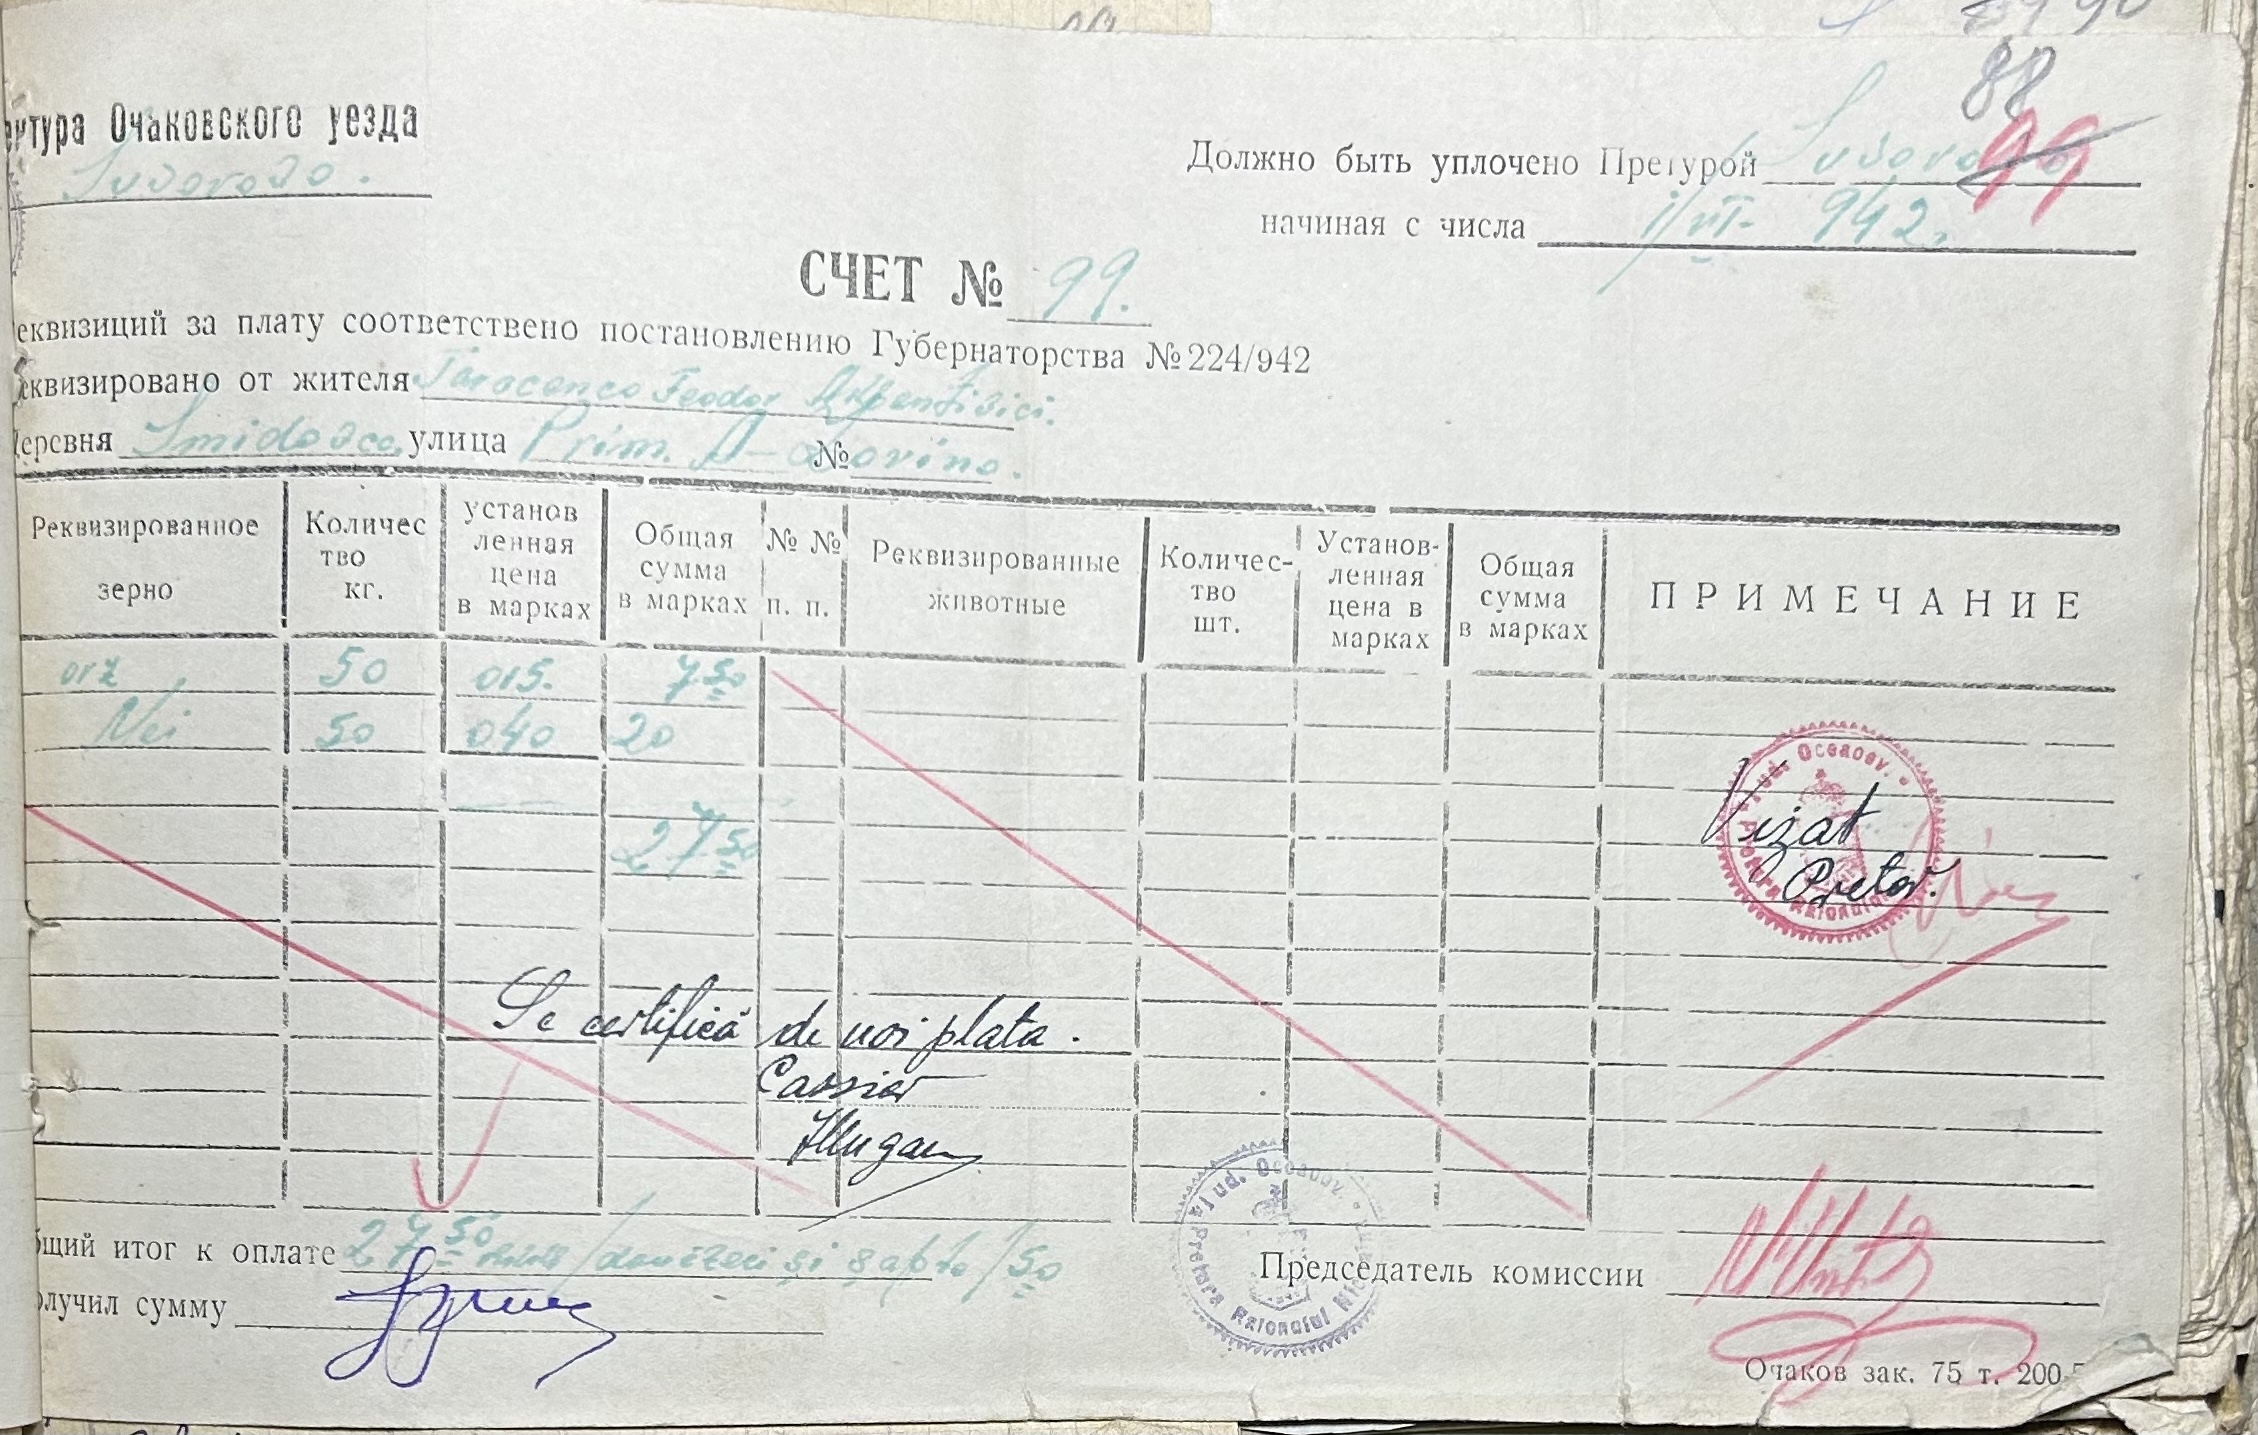 88
99
ектура Очаковского уезда
Suvorovo.
Должно быть уплочено Претурой Suvorovo
начиная с числа 1/VII- 942.
СЧЕТ № 99.
еквизиций за плату соответствено постановлению Губернаторства № 224/942
еквизировано от жителя Taracenco Feodor
Деревня улица Prim. №
Реквизированное зерно Количес тво кг. установ ленная цена в марках Общая сумма в марках № № п. п. Реквизированные животные Количес- тво шт. Установ- ленная цена в марках Общая сумма в марках ПРИМЕЧАНИЕ
orz 50 015. 7 50
Mei 50 040 20
27 50
Jud. Oceacov. Pretura Raionului
Vizat
Pretor.
Se certifică de noi plata.
Cassier
бщий итог к оплате 27 50 /douăzeci și șapte/50
Jud. Oceacov. Pretura Raionului
Председатель комиссии
олучил сумму
Очаков зак. 75 т. 200